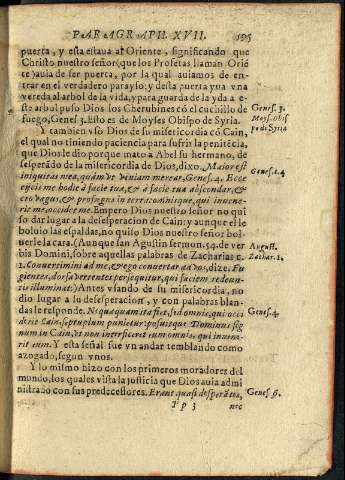 PARAGRAPH. XVII. 195
puerta, y esta estaua al Oriente, significando que
Christo nuestro señor (que los Profetas llaman Orié
te) auia de ser puerta, por la qual auiamos de en-
trar en el verdadero parayso: y desta puerta yua vna
vereda al arbol de la vida, y para guarda de la yda a es-
te arbol puso Dios los Cherubines có el cuchillo de
fuego, Genes. 3. Esto es de Moyses Obispo de Syria.
Genes. 3.
Moys. obis
po di Syria
Y tambien vsó Dios de su misericordia có Cain,
el qual no tiniendo paciencia para sufrir la penitécia,
que Dios le dio porque mato a Abel su hermano, de
sesperádo de la misericordia de Dios, dixo. Maior est
iniquitas mea, quàm vt veniam merear, Genes. 4. Ecce
eijcis me hodie à facie tua, & à facie tua abscondar, &
ero vagus, & profugus in terra: omnisque, qui inuene-
rit me, occidet me. Empero Dios nuestro señor no qui
so dar lugar a la desesperacion de Cain: y aunque el le
boluio las espaldas, no quiso Dios nuestro señor bol-
uerle la cara. (Aunque san Agustin sermon. 54. de ver
bis Domini, sobre aquellas palabras de Zacharias c.
1. Conuertimini ad me, & ego conuertar ad vos, dize. Fu
gientes, dorsa vertentes persequitur, qui faciem redeun-
tis illuminat:) Antes vsando de su misericordia, no
dio lugar a su desesperacion, y con palabras blan-
das le responde. Nequaquam ita fiet, sed omnis, qui occi
derit Cain, septuplum punietur: posuitque Dominus sig
num in Cain, vt non interficeret eum omnis, qui inuene-
rit eum. Y esta señal fue vn andar temblando como
azogado, segun vnos.
Genes. c. 4
August.
Zachar. 1.
Genes. 4.
Y lo mismo hizo con los primeros moradores del
mundo, los quales vista la justicia que Dios auia admi
nistrado con sus predecessores. Erant quasi desperátes,
Genes. 6.
Pp 3 nec